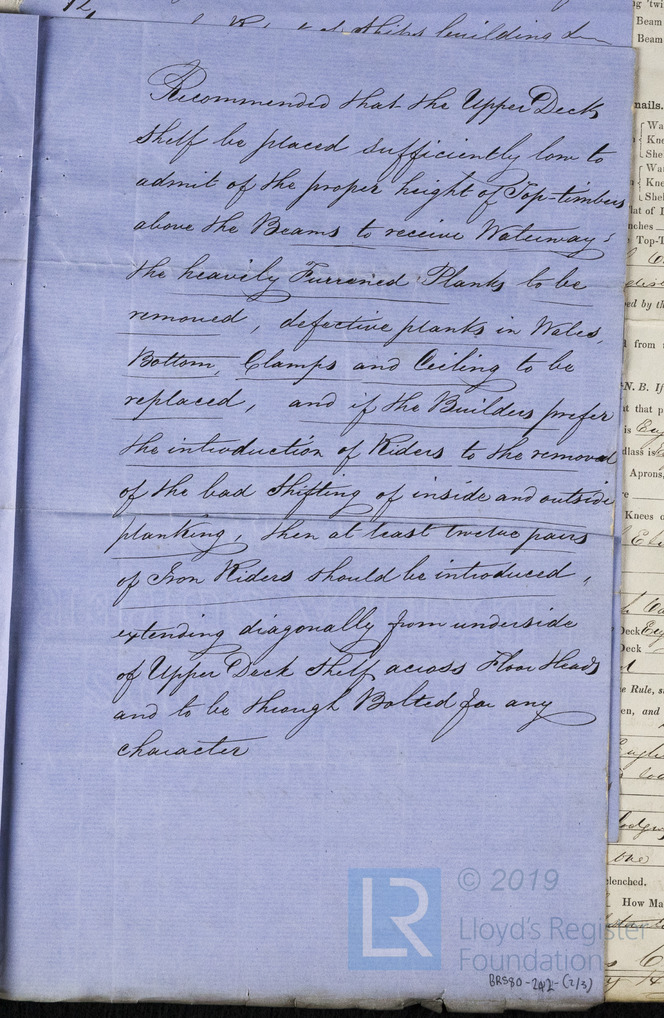 Ships building
Recommended that the Upper Deck
Shelf be placed sufficiently low to
admit of the proper height of Top-timbers
above the Beams to receive Waterway:
the heavily Furrened Planks to be
removed, defective planks in Wales,
Bottom, Clamps and Ceiling to be
replaced, and if the Builders prefer
the introduction of Riders to the removal
of the bad Shifting of inside and outside
planking, then at least twelve pairs
of Iron Riders should be introduced,
extending diagonally from underside
of Upper Deck Shelf across Floor Heads
and to be through Bolted for any
character
LR
© 2019
Lloyd's Register
Foundation
BRS80-242-(2/3)
Beam
Beam
nails.
Wa
Kne
She
Wa
Kne
Shel
nches
Top-T
ed by th
from
N. B. If
at that p
is Eng
Aprons,
Knees o
Deck Eng
Deck
e Rule, s
en, and
Engli
one
lenched.
How Ma